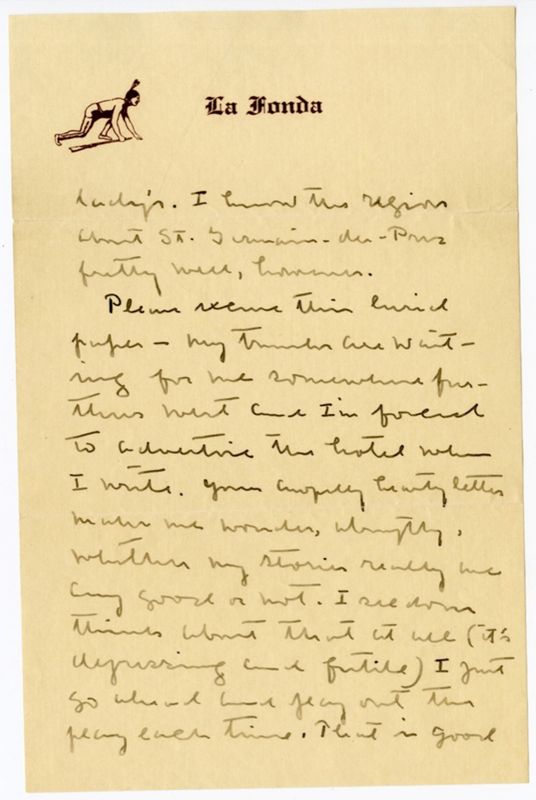 La Fonda
to-day's. I know the region
about St. Germain-des-Pres
pretty well, however.
Please excuse this lurid
paper – my trunks are wait-
ing for me somewhere fur-
ther west and I'm forced
to advertise the hotel when
I write. Your awfully hearty letter
makes me wonder, abruptly,
whether my stories really are
any good or not. I seldom
think about that at all (it's
depressing and futile) I just
go ahead and play out the
play each time. That is good